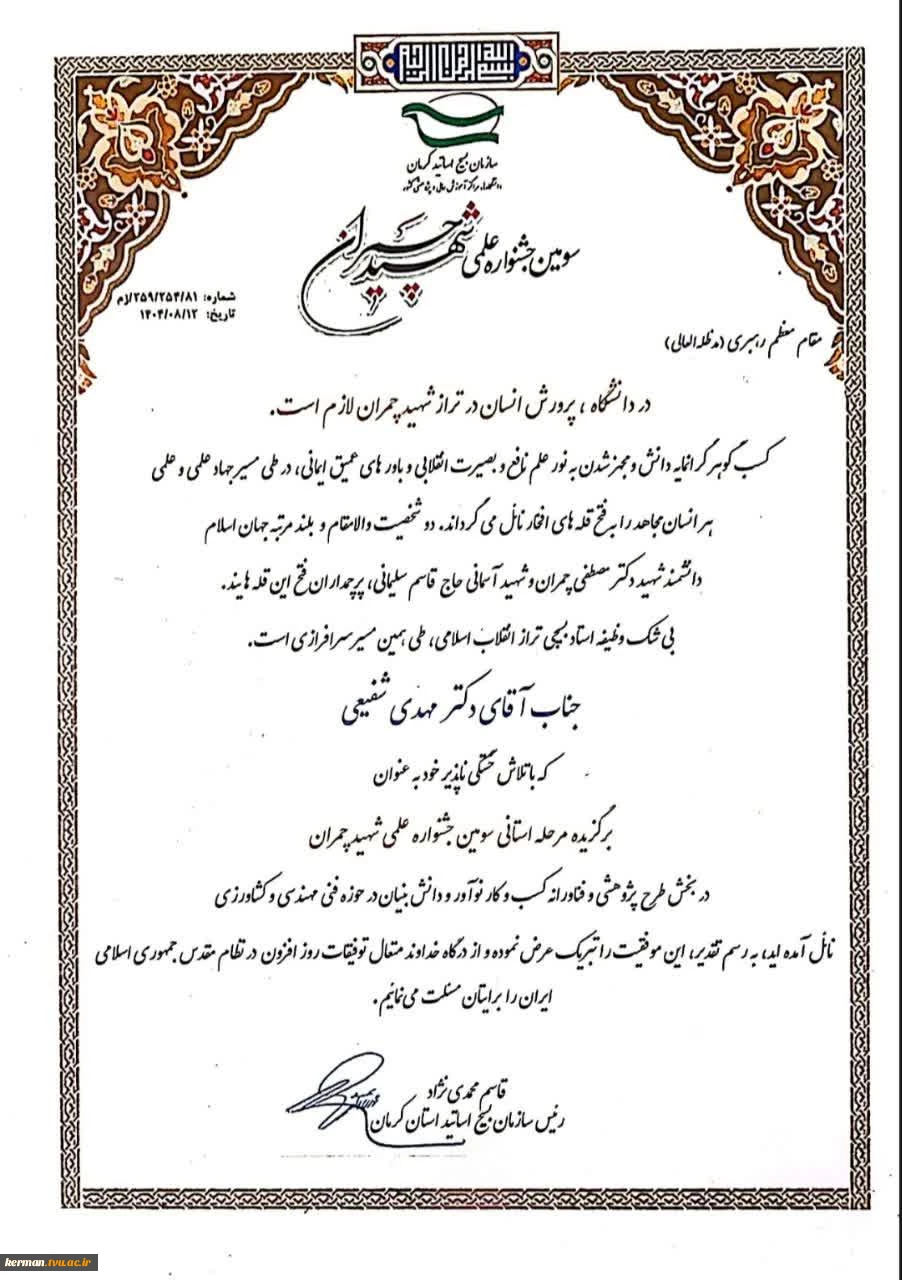 بسم الله الرحمن الرحیم
سازمان بسیج اساتید کرمان
دانشگاه‌ها، مراکز آموزش عالی و پژوهشی کشور
سومین جشنواره علمی شهید چمران
شماره: ۲۵۹/۲۵۴/۸۱/م
تاریخ: ۱۴۰۴/۰۸/۱۲
مقام معظم رهبری (مدظله العالی)
در دانشگاه، پرورش انسان در تراز شهید چمران لازم است.
کسب گوهر گرانمایه دانش و مجهز شدن به نور علم نافع و بصیرت انقلابی و باور های عمیق ایمانی، در طی مسیر جهاد علمی و علمی
هر انسان مجاهد را به فتح قله های افتخار نائل می گرداند. دو شخصیت والامقام و بلند مرتبه جهان اسلام
دانشمند شهید دکتر مصطفی چمران و شهید آسمانی حاج قاسم سلیمانی، پرچمداران فتح این قله هایند.
بی شک وظیفه استاد بسیجی تراز انقلاب اسلامی، طی همین مسیر سرافرازی است.
جناب آقای دکتر مهدی شفیعی
که با تلاش خستگی ناپذیر خود به عنوان
برگزیده مرحله استانی سومین جشنواره علمی شهید چمران
در بخش طرح پژوهشی و فناورانه کسب و کار نوآور و دانش بنیان در حوزه فنی مهندسی و کشاورزی
نائل آمده اید، به رسم تقدیر، این موفقیت را تبریک عرض نموده و از درگاه خداوند متعال توفیقات روز افزون در نظام مقدس جمهوری اسلامی
ایران را برایتان مسئلت می نمائیم.
قاسم محمدی نژاد
رئیس سازمان بسیج اساتید استان کرمان
kerman.tvu.ac.ir